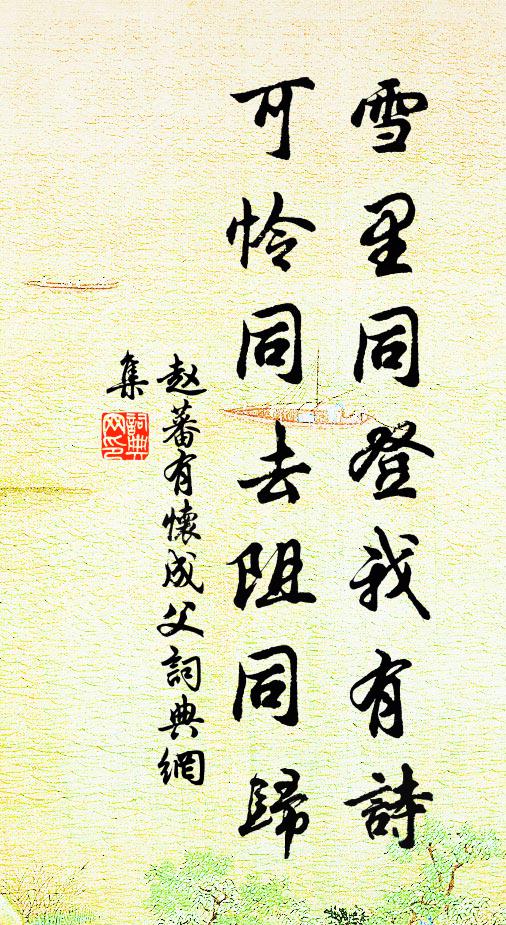 雪里同登我有詩
可怜同去阻同歸
赵蕃有懷成父詞典網
集
詞典网印